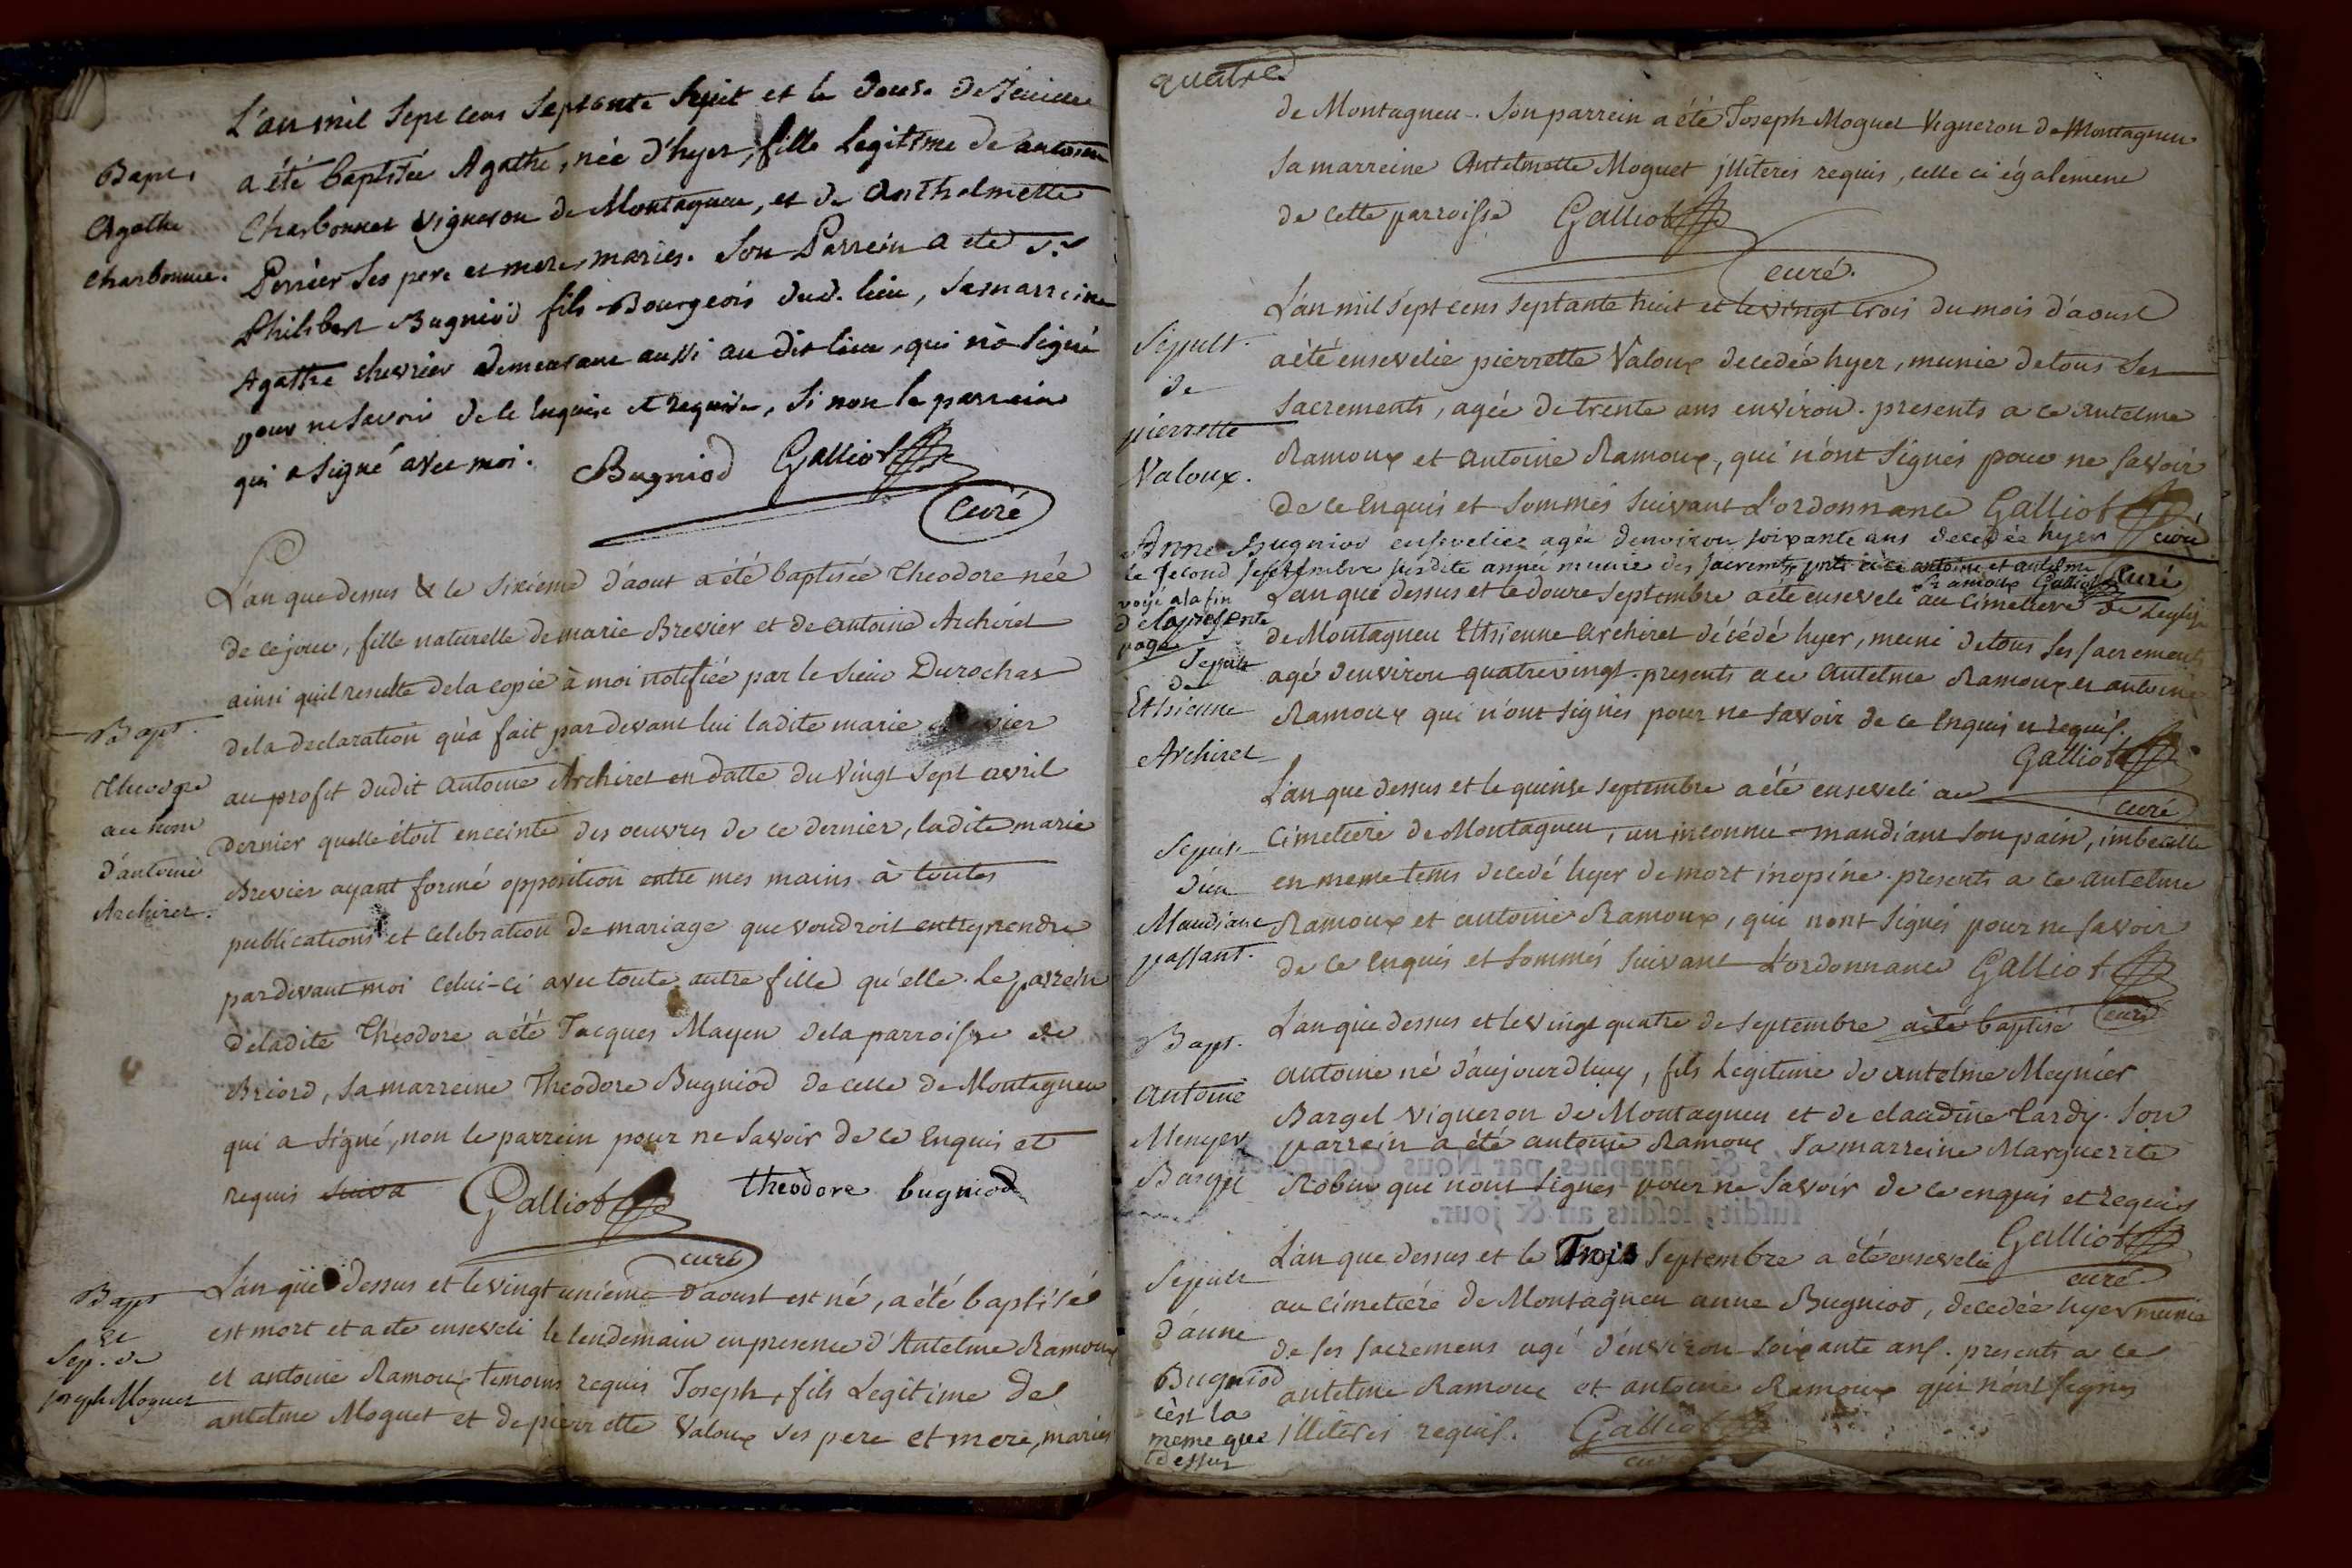 L'an mil sept cens septante huit et le douse de Juillet
Bapt.
a été baptisée Agathe, née d'hyer, fille Legitime de antoine
Agathe
Charbonnet vigneron de Montagneu, et de Anthelmette
Charbonnet.
Perrier ses pere et mere, maries. Son Parrein a ete Sr.
Philibert Bugniod fils Bourgeois dud. lieu, sa marreine
Agathe chevrier demeurant aussi au dit lieu, qui n'a signé
pour ne savoir de ce enquise et requise, si non le parrein
qui a signé avec moi. Bugniod Galliot
Curé
L'an que dessus & le sixiéme d'aout a été baptisée Theodore née
de ce jour, fille naturelle de marie Brevier et de antoine Archiret
ainsi quil resulte de la copie à moi notifiée par le sieur Durochas
Bapt.
de la declaration qu'a fait par devant lui ladite marie
Theodore
au profit dudit antoine Archiret en datte du vingt sept avril
au nom
dernier quelle étoit enceinte des oeuvres de ce dernier, ladite marie
d'antoine
Brevier ayant formé opposition entre mes mains à toutes
Archiret.
publications et celebration de mariage que voudroit entreprendre
pardevant moi celui-ci avec toute autre fille qu'elle. Le parrein
de ladite Théodore a été Jacques Mayeu de la parroisse de
Briord, sa marreine Theodore Bugniod de celle de Montagneu
qui a signé, non le parrein pour ne savoir de ce enquis et
requis suiva Galliot theodore bugniod
curé
Bapt
L'an que dessus et le vingt uniéme d'aoust est né, a été baptisé
et
est mort et a ete enseveli le lendemain en presence d'Antelme Ramoux
Sep. de
et antoine Ramoux temoins requis Joseph, fils Legitime de
joseph Moguet
antelme Moguet et de pierrette Valoux ses pere et mere, mariés
quatre
de Montagneu. Son parrein a été Joseph Moguet Vigneron de Montagneu
sa marreine Antelmette Moguet illiteres requis, celle ci également
de cette parroisse Galliot
curé.
L'an mil sept cens septante huit et le vingt trois du mois d'aoust
Sepult.
a été ensevelie pierrette Valoux decedée hyer, munie de tous ses
de
sacrements, agée de trente ans environ. presents a ce Antelme
pierrette
Ramoux et antoine Ramoux, qui n'ont signés pour ne savoir
Valoux.
de ce enquis et sommés suivant L'ordonnance Galliot
curé
Anne Bugniod ensevelie agée denviron soixante ans decedée hyer
le second septembre susdite année munie des sacremts. pnts. à ce antoine et antelme
Ramoux Galliot curé
voyé a la fin
de la presente
page
L'an que dessus et le douze septembre a été enseveli au Cimetiere de Leglise
Sepult
de Montagneu Ethienne Archiret décédé hyer, muni de tous ses sacrements
de
agé d'environ quatrevingt. presents a ce Antelme Ramoux et antoine
Ethienne
Ramoux qui n'ont signés pour ne savoir de ce enquis et requis.
Archiret
Galliot
curé
L'an que dessus et le quinse septembre a été enseveli au
Sepult.
cimetiere de Montagneu, un inconnu mandiant son pain, imbecille
d'un
en meme tems decedé hyer de mort inopine. presents a ce antelme
Mandiant
Ramoux et antoine Ramoux, qui nont signés pour ne savoir
passant.
de ce enquis et sommés suivant L'ordonnance Galliot
curé
Bapt.
L'an que dessus et le vingt quatre de septembre a été baptisé
Antoine
antoine né d'aujourdhuy, fils Legitime de antelme Meynier
Menyer
Bargel vigneron de Montagneu et de claudine Tardy. Son
Bargel
parrein a été antoine Ramoux sa marreine Marguerite
Robin qui nont signés pour ne savoir de ce enquis et requis
Galliot
curé
L'an que dessus et le Trois septembre a été ensevelie
Sepult
au cimetiére de Montagneu anne Bugniod, decedée hyer munie
d'anne
de ses sacremens agé d'environ soixante ans. presents a ce
Bugniod
antelme Ramoux et antoine Ramoux qui n'ont signés
c'est la
meme que
illiteres requis. Galliot
dessus